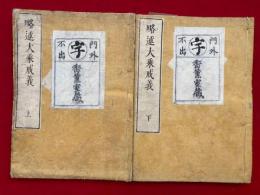 略述大乘戒義 上
門外
不出
字
略述大乘戒義 下
門外
不出
字